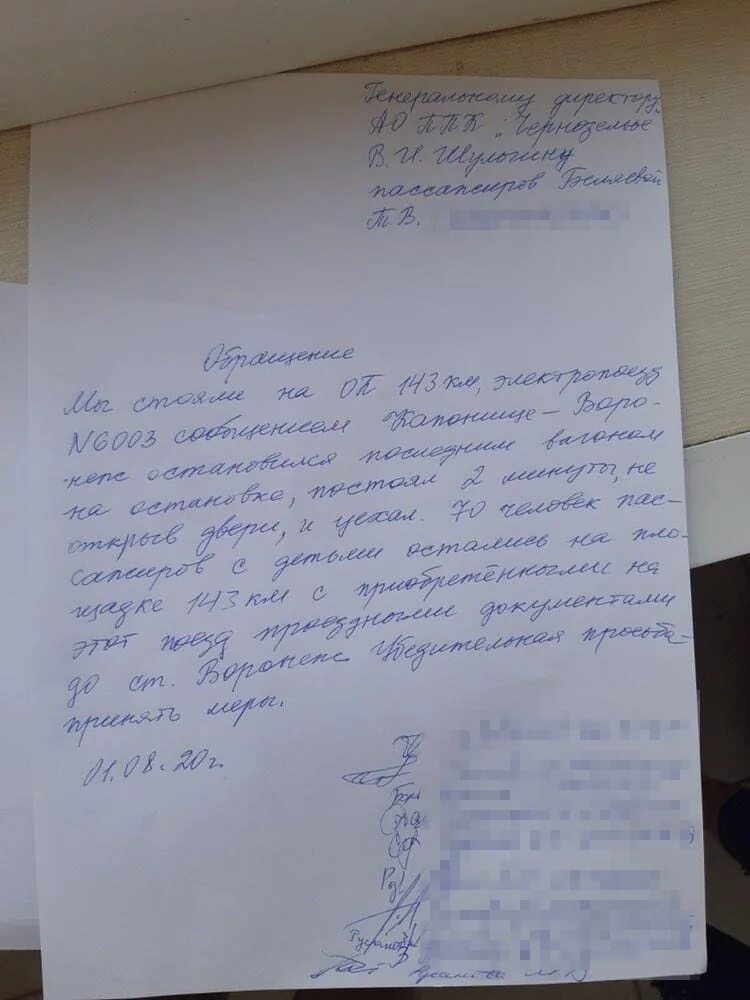 Генеральному директору
АО ППК "Черноземье
В.И. Шулыгину
пассажиров Беляевой
Т.В.
Обращение
Мы стояли на ОП 143 км, электропоезд
N6003 сообщением Колодезная – Воро-
неж остановился последним вагоном
на остановке, постоял 2 минуты, не
открыв двери, и уехал. 70 человек пас-
сажиров с детьми остались на пло-
щадке 143 км с приобретёнными на
этот поезд проездными документами
до ст. Воронеж. Убедительная просьба
принять меры.
01.08.20г.
Русанова М В